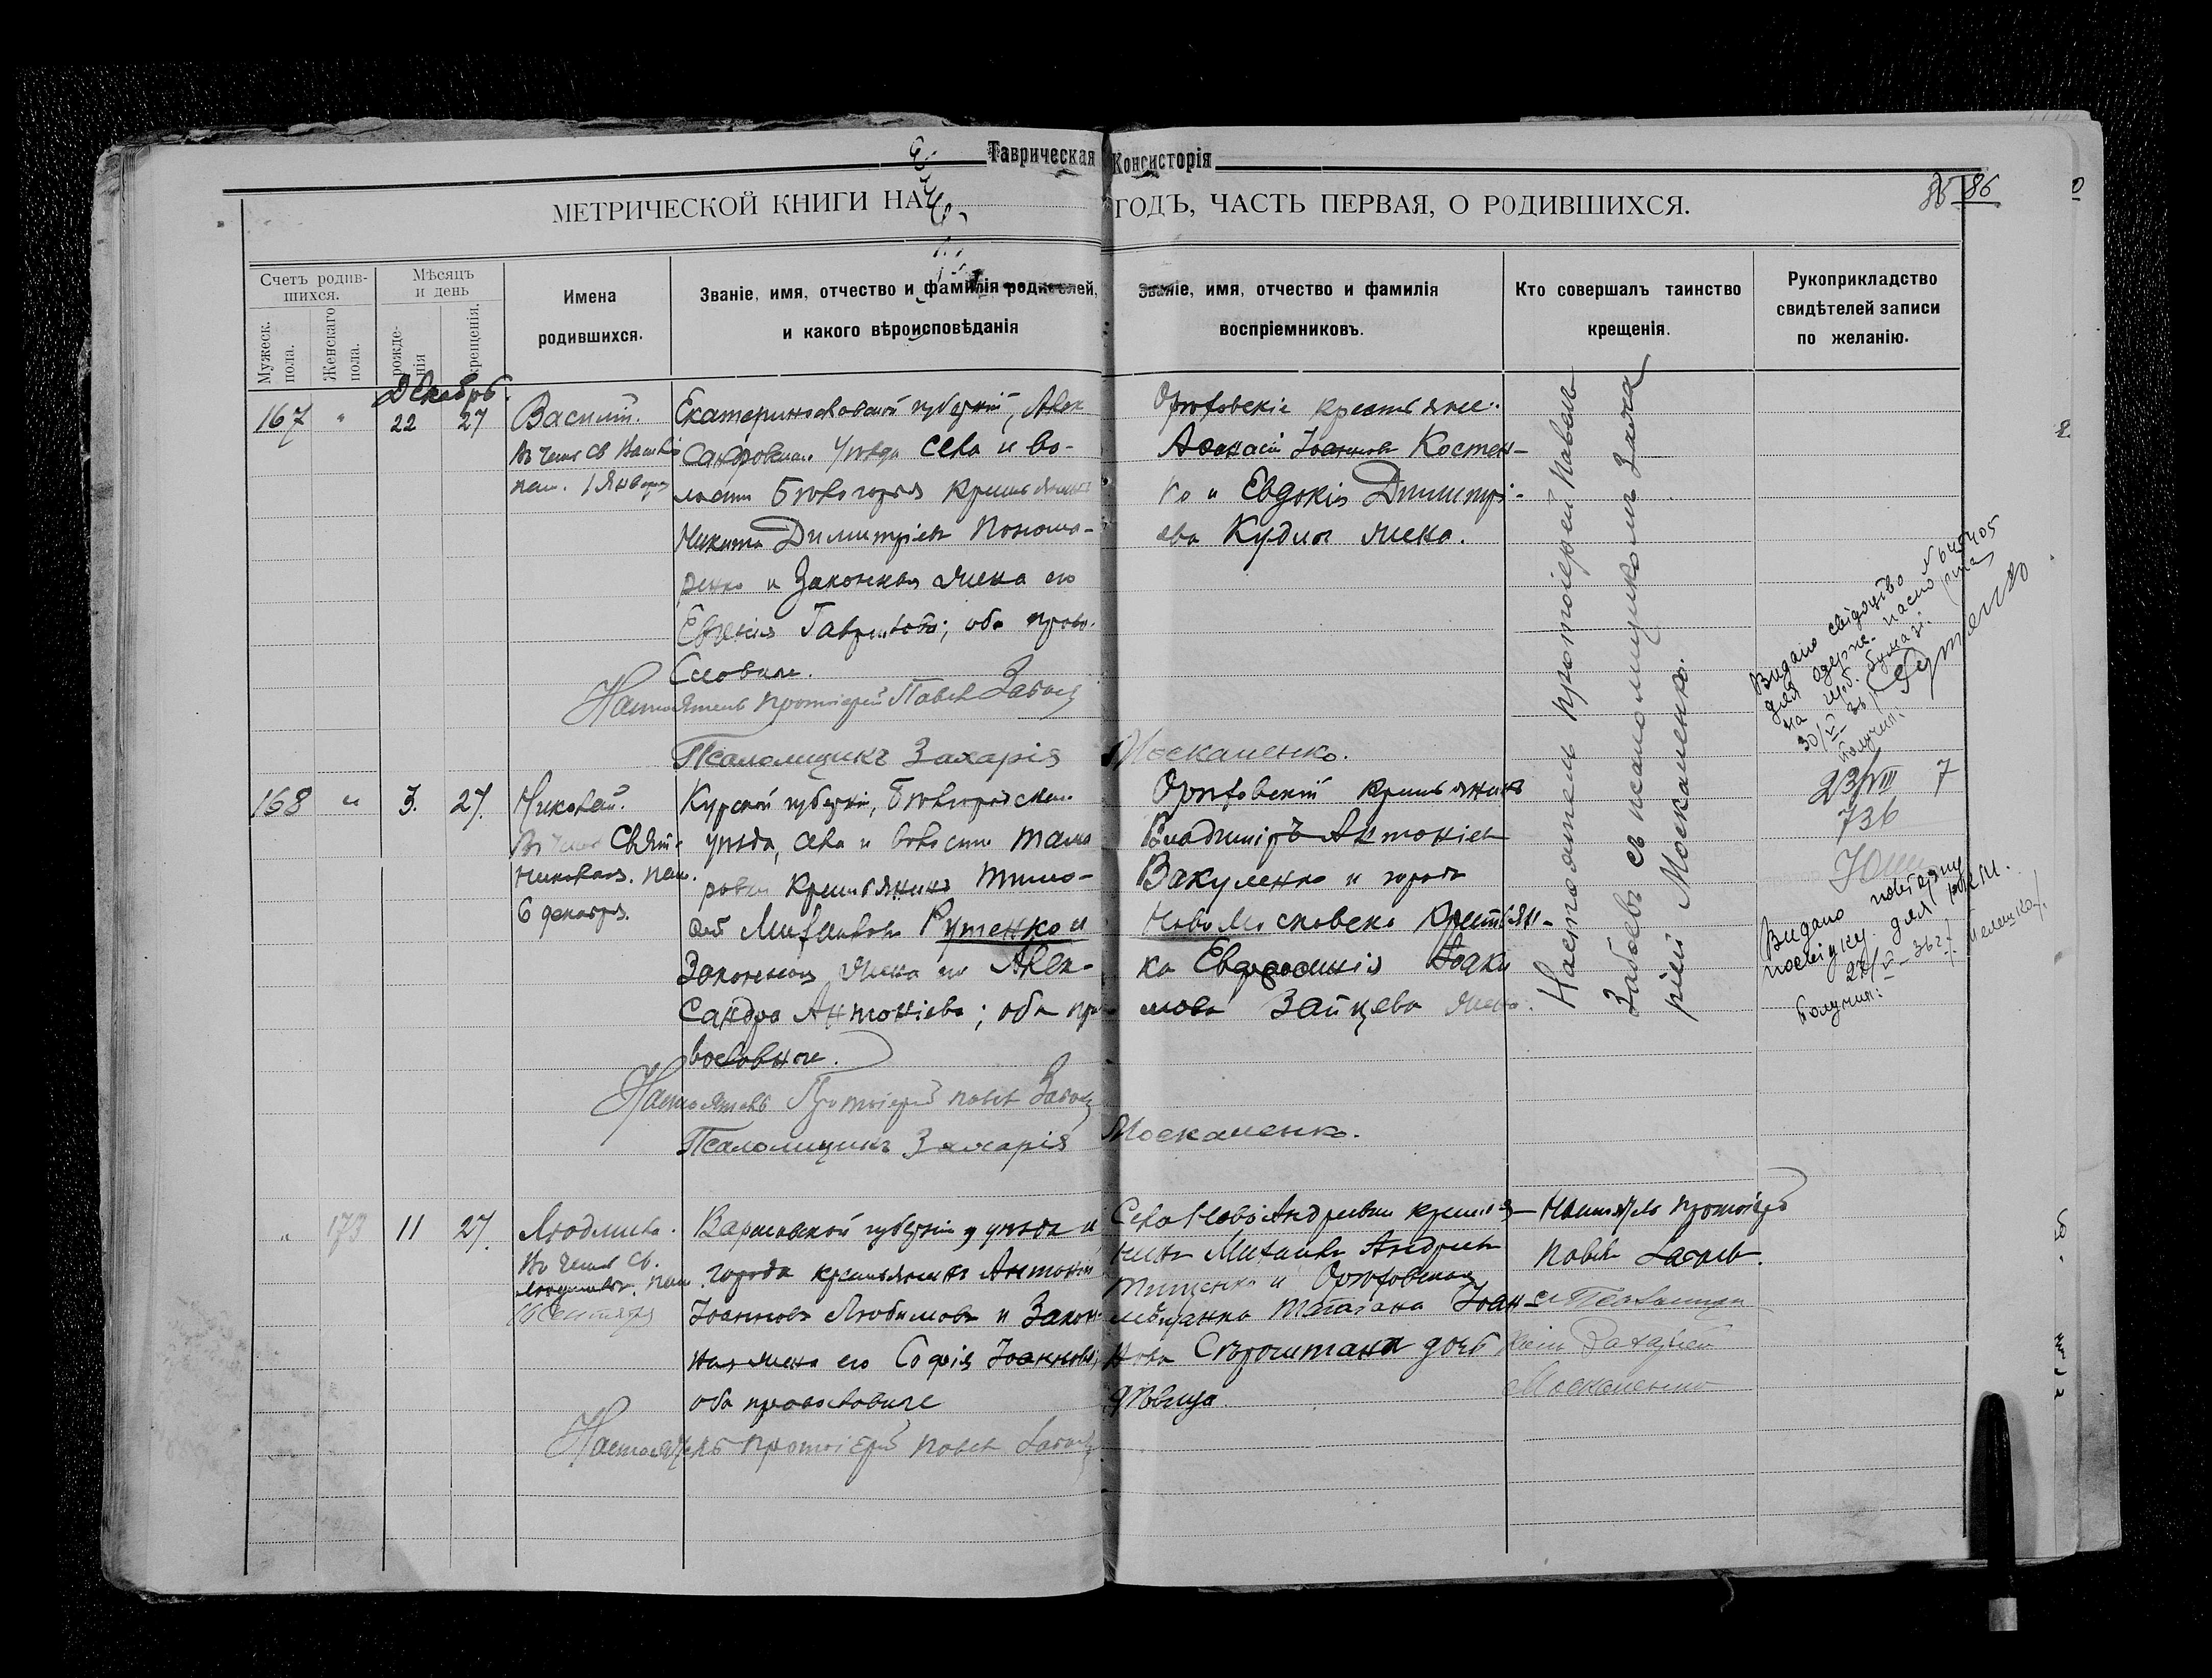 Таврическая Консисторія
МЕТРИЧЕСКОЙ КНИГИ НА ГОДЪ, ЧАСТЬ ПЕРВАЯ, О РОДИВШИХСЯ.
86 86
Счетъ родив-
шихся.
Мужеск.
пола.
Женскаго
пола.
Мѣсяцъ
и день
рожде-
нія
крещенія.
Имена
родившихся.
Званіе, имя, отчество и фамилія родителей,
и какого вѣроисповѣданія
Званіе, имя, отчество и фамилія
воспріемниковъ.
Кто совершалъ таинство
крещенія.
Рукоприкладство
свидѣтелей записи
по желанію.
Декабрь.
167 " 22 27
Василій.
Въ честь св Василія
пам. 1 Января
Екатеринославской губерніи, Алек
сандровскаго уѣзда села и во-
лости Бѣлогорья крестьянинъ
Никита Димитріевъ Понома-
ренко и законная жена его
Гаврилова; оба право-
славные.
Настоятель протоіерей Павелъ
Псаломщикъ Захарія Москаленко.
Орѣховскіе крестьяне:
Аѳанасій Іоанновъ Костен-
ко и Евдокія Димитрі-
ева Кудли жена.
Настоятель протоіерей Павелъ
съ псаломщикомъ Заха
ріей Москаленко.
168 " 3. 27.
Николай.
Въ честь Свят.
Николая. пам.
6 декабря.
Курской губерніи, Бѣлгородскаго
уѣзда, села и волости Тама
ровки крестьянинъ Тимо-
ѳей Михаиловъ Рутенко и
законная жена его Алек-
сандра Антоніева; оба пра-
вославные.
Настоятель Протоіерей Павелъ
Псаломщикъ Захарія Москаленко.
Орѣховскій крестьянинъ
Владиміръ Антоніевъ
Вакуленко и города
Новомосковска крестьян-
ка Евфросинія Іоаки
мова Зайцева жена.
Видано свідоцтво
для одерж. паспорта
30/V 36
Получил:
23/VIII 7
736
Видано
посвідку для
27/V-36г.
Получил:
" 173 11 27.
Людмила.
Въ честь св.
Людмилы. пам
16 Сентября
Варшавской губерніи, уѣзда и
города крестьянинъ Антоній
Іоанновъ Любимовъ и закон-
ная жена его Софія Іоаннова;
оба православные
Настоятель протоіерей Павелъ
Села Ново Андреевки крестья-
нинъ Михаилъ Андреевъ
Тищенко и Орѣховская
мѣщанка Татіана Іоан-
нова дочь
дѣвица.
Настоятель протоіерей
Павелъ
съ Псаломщи
комъ Захаріей
Москаленко